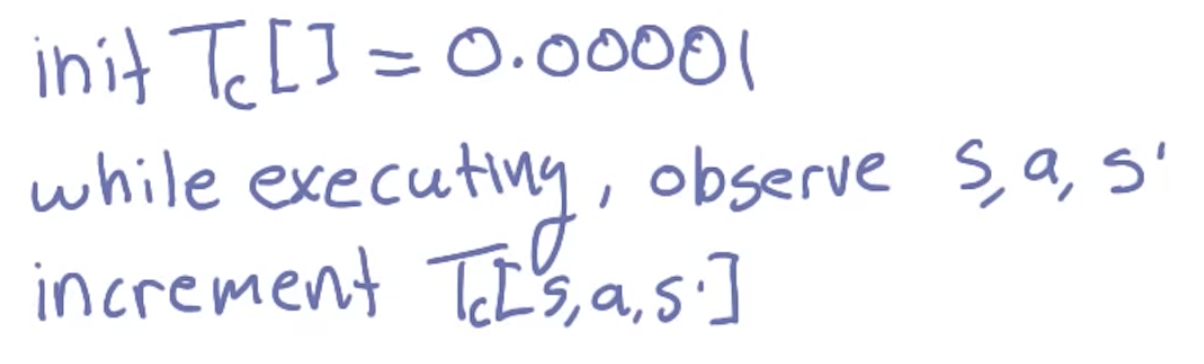 init Tc[] = 0.00001
while executing, observe s, a, s'
increment Tc[s,a,s']